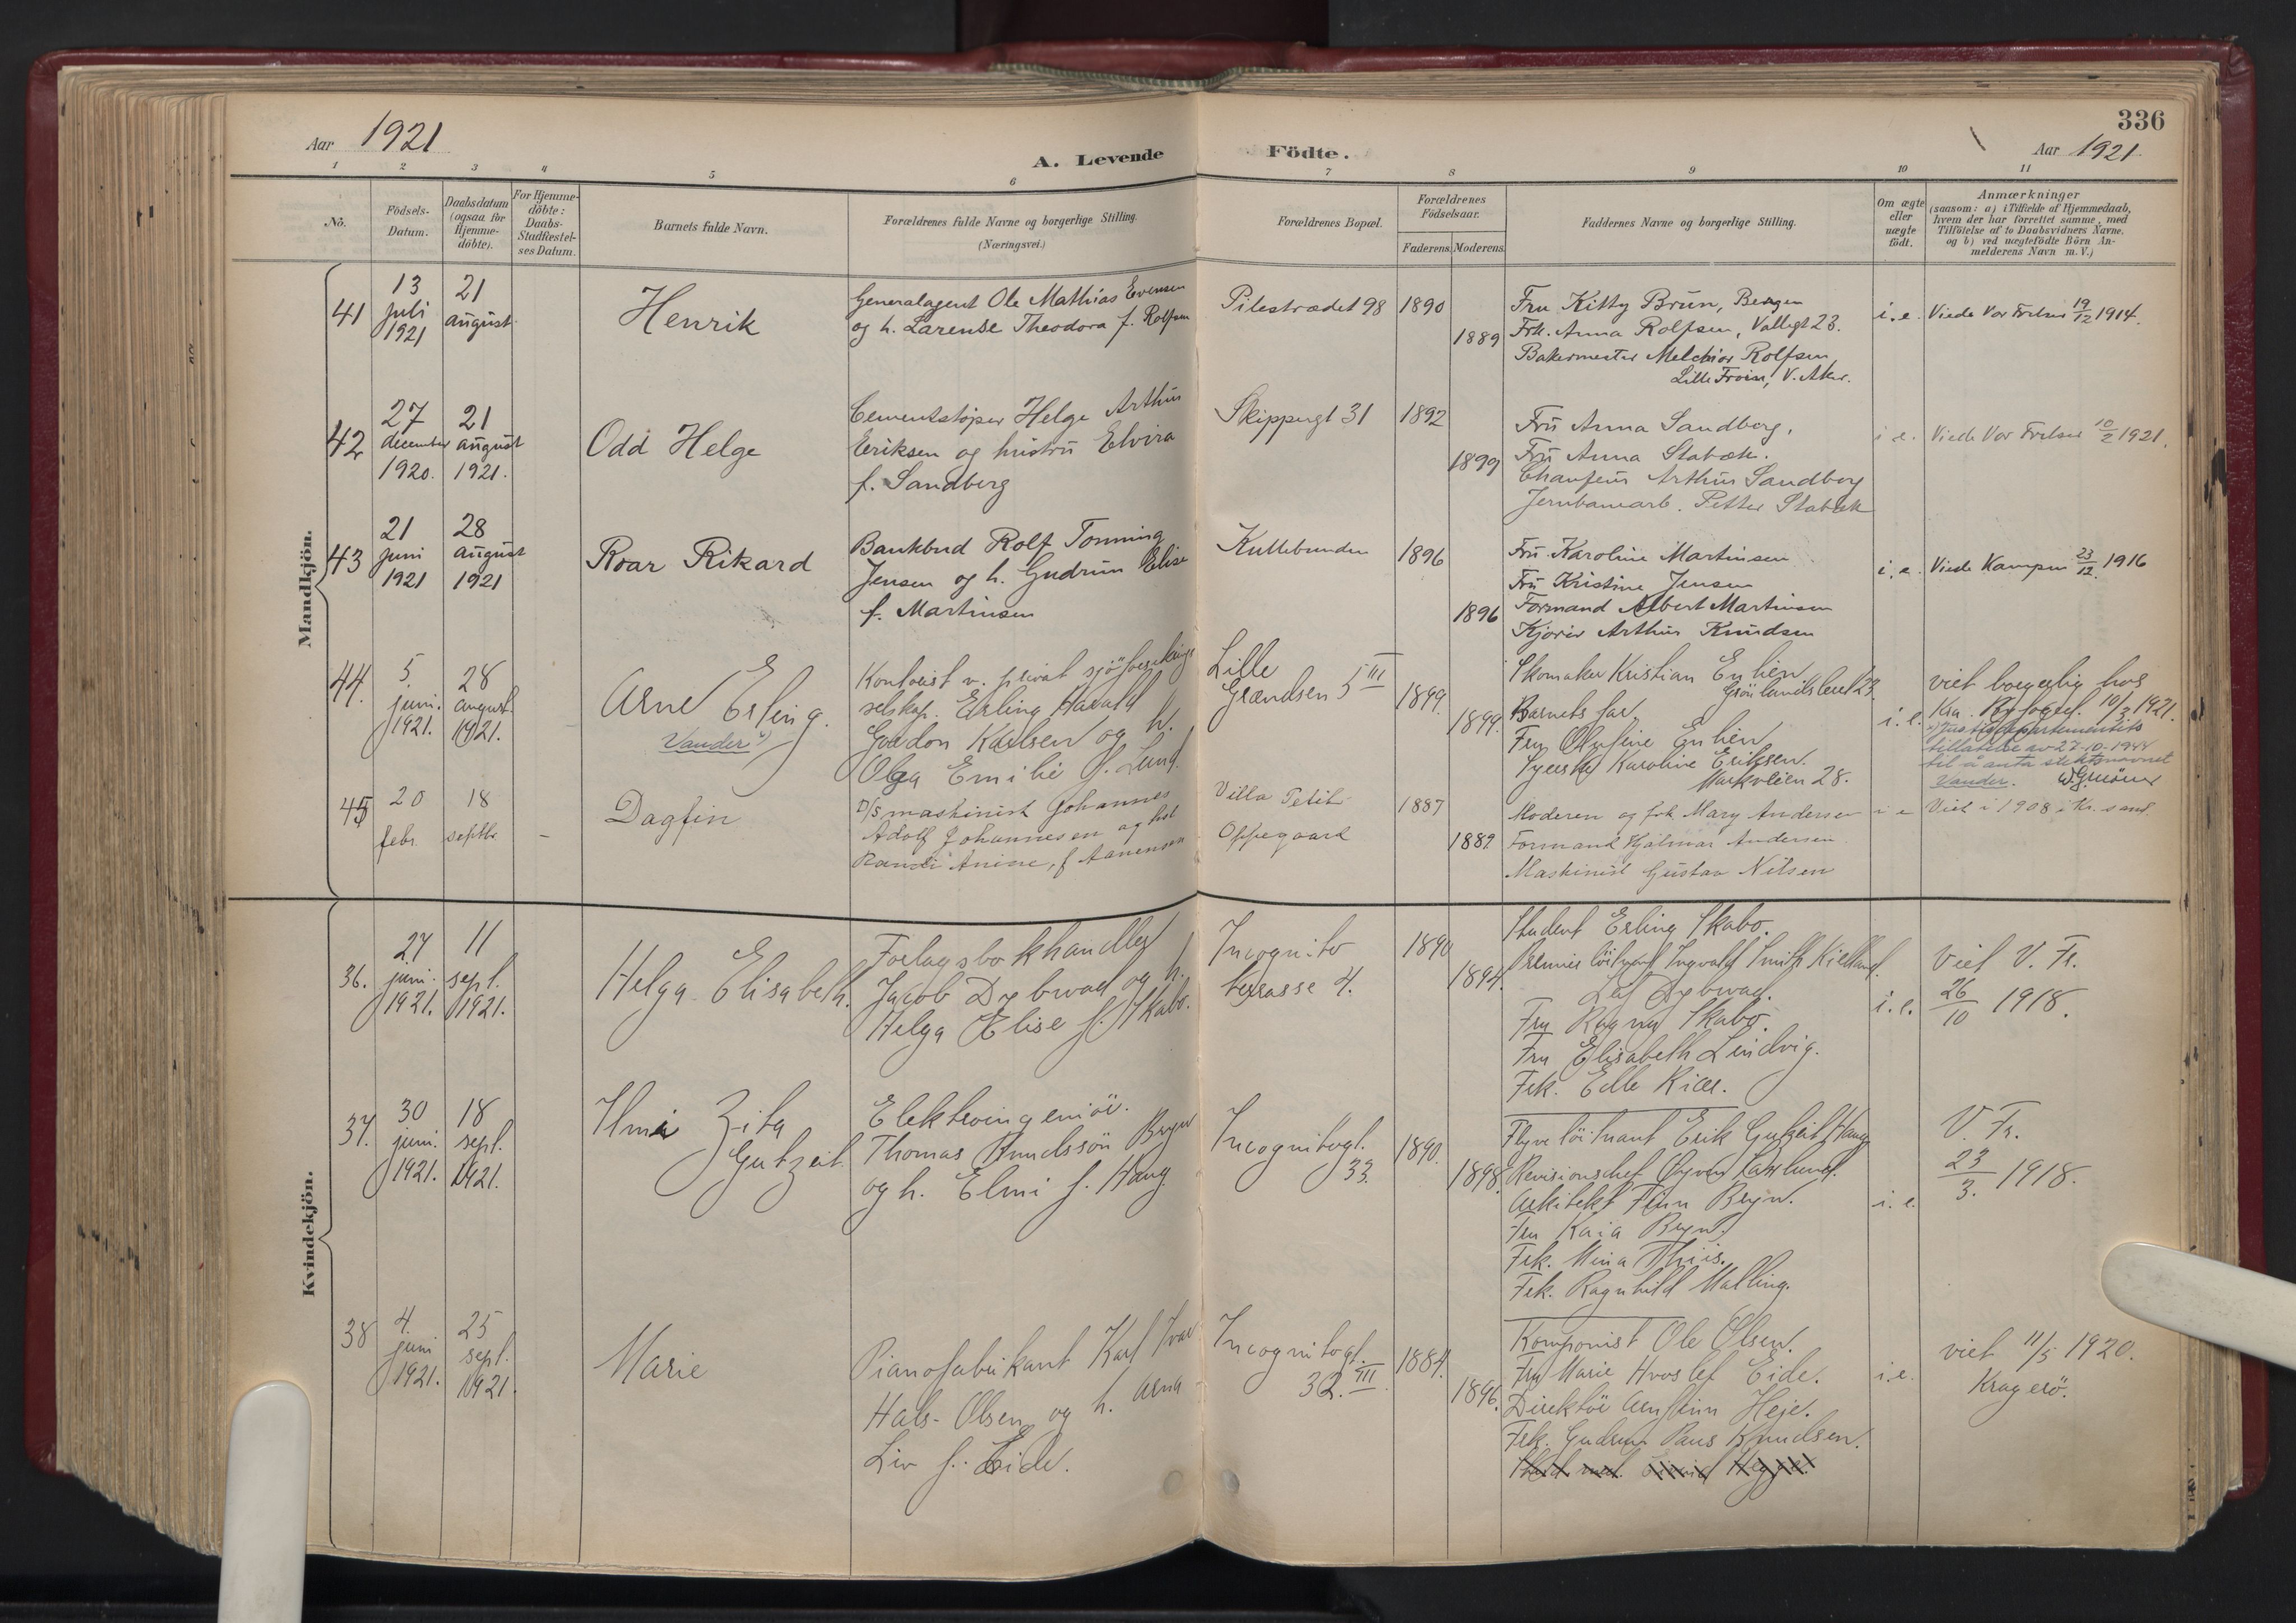 336
Aar 1921
A. Levende Födte.
Aar 1921
1 2 3 4 5 6 7 8 9 10 11
No.
Födsels-Datum.
Daabsdatum (ogsaa for Hjemme-döbte).
For Hjemme-döbte: Daabs-Stadfæstel-ses Datum.
Barnets fulde Navn.
Forældrenes fulde Navne og borgerlige Stilling.
(Næringsvei.)
Forældrenes Bopæl.
Forældrenes Födselsaar.
Faderens. Moderens.
Faddernes Navne og borgerlige Stilling.
Om ægte eller uægte födt.
Anmærkninger
(saasom: a) i Tilfælde af Hjemmedaab,
hvem der har forrettet samme, med
Tilföielse af to Daabsvidners Navne.
og b) ved uægtefödte Börn An-
melderens Navn m. V.)
Mandkjön.
41
13 juli 1921
21 august
Henrik
Generalagent Ole Mathias Evensen
og h. Larense Theodora f. Rolfsen
Pilestrædet 98
1890
1889
Fru Kitty Brun, Bergen
Frk. Anna Rolfsen, Vallegt 23.
Bakermester Melchior Rolfsen
Lille Froen, V. Aker.
i. e.
Viede Vor Frelser 19/12 1914.
42
27 december 1920.
21 august 1921.
Odd Helge
Cementstøper Helge Arthur
Eriksen og hustru Elvira
f. Sandberg
Skippergt 31
1892
1899
Fru Anna Sandberg.
Fru Anna Stabæk.
Chauffeur Arthur Sandberg
Jernbanearb. Petter Stabæk
i e.
Viede Vor Frelser 10/2 1921.
43
21 juni 1921
28 august 1921
Roar Rikard
Bankbud Rolf Tonning
Jensen og h. Gudrun Elise
f. Martinsen
Kullebunden
1896
1896
Fru Karoline Martinsen
Fru Kristine Jensen
Formand Albert Martinsen
Kjører Arthur Knudsen
i. e.
Viede Kampen 23/12. 1916
44.
5. juni. 1921.
28 august. 1921.
Arne Erling.
Vander
Kontorist v. privat sjöforsikrings
selskap. Erling Harald
Gordon Karlsen og h.
Olga Emilie f. Lund.
Lille
Grændsen 5 III
1899.
1899.
Skomaker Kristian Enlien
Grönlandsleret 23.
Barnets far.
Fru Olufine Enlien
Syerske Karoline Eriksen.
Markveien 28.
i. e.
viet borgerlig hos
Kra. Byfogd. 10/3 1921.
Justisdepartementets
tillatelse av 27-10-1944
til å anta slektsnavnet
Vander.
45
20 febr.
18 septbr.
-
Dagfin
D/S maskinist Johannes
Adolf Johannesen og hst
Randi Anine, f Aanensen
Villa Petit
Oppegaard
1887
1882
Moderen og frk. Mary Andersen
Formand Hjalmar Andersen
Maskinist Gustav Nilsen
i e
Viet i 1908 i Kr. sand.
Kvindekjön.
36.
27 juni. 1921.
11 sept. 1921.
Helga Elisabeth.
Forlagsbokhandler
Jacob Dybwad og h.
Helga Elise f. Skabo.
Incognito
terrasse 4.
1890
1894.
Student Erling Skabo.
Premierlöitnant Ingvald Smith Kielland.
Dybwad.
Fru Ragna Skabo.
Fru Elisabeth Lindvig.
Frk. Edle Kiær.
i. e.
Viet V. Fr.
26/10 1918.
37.
30 juni. 1921.
18 sept. 1921.
Zita
Gutzeit.
Elektroingeniör.
Thomas Knudssön Bryn
og h. Elmi f. Haug
Incognitogt.
33.
1890.
1898.
Flyve löitnant Erik Gutzeit Haug
Revisionschef
Arkitekt Finn Bryn.
Fru Kaia Bryn.
Frk. Mina Thiis.
Frk. Ragnhild Malling.
i. e.
V. Fr.
23/3. 1918.
38
4. juni 1921.
25 sept. 1921.
Marie
Pianofabrikant Karl Ivar
Hals-Olsen og h. Arna
Liv f. Eide.
Incognitogt.
32. III.
1884.
1896.
Komponist Ole Olsen.
Fru Marie Hvoslef Eide.
Direktör Arnfinn Heje.
Frk. Gudrun Paus Knudsen.
i. e.
viet 11/5 1920.
Kragerö.